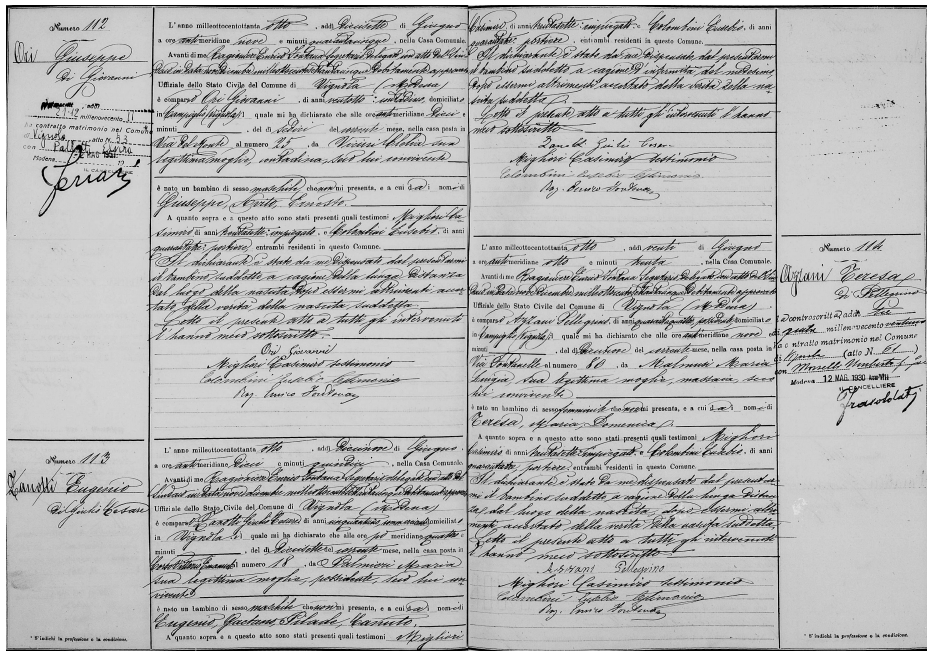 Numero 112
Ori Giuseppe
di Giovanni
ha contratto matrimonio nel Comune
di Vignola
atto N. 33
con
Modena, MAG 1931
IL CANCELLIERE
L'anno milleottocentottanta otto, addì Diciasette di Giugno
a ore antimeridiane nove e minuti quarantacinque, nella Casa Comunale.
Avanti di me Ragioniere Enrico Fontana Segretario delegato con atto del Sin
daco in data
Uffiziale dello Stato Civile del Comune di Vignola (Modena)
è comparso Ori Giovanni, di anni ventotto, domiciliato
in Campiglio (Vignola), il quale mi ha dichiarato che alle ore antimeridiane Dieci e
minuti —, del dì Sedici del corrente mese, nella casa posta in
Via del Monte al numero 25, da Clelia sua
legittima moglie, contadina, seco lui convivente
è nato un bambino di sesso maschile che non mi presenta, e a cui dà i nomi di
Giuseppe, Ernesto.
A quanto sopra e a questo atto sono stati presenti quali testimoni Migliori Ca
simiro di anni trentasette, impiegato e Colombini Eusebio, di anni
quarantatre, portiere, entrambi residenti in questo Comune.
Il dichiarante è stato da me dispensato dal presentarmi
il bambino suddetto a cagione della lunga distanza
dal luogo della nascita, dopo essermi altrimenti accer
tato della verità della nascita suddetta.
Letto il presente atto a tutti gli intervenuti
l'hanno meco sottoscritto.
Ori Giovanni
Migliori Casimiro testimonio
Colombini Eusebio testimonio
Rag. Enrico Fontana
Numero 113
Zanotti Eugenio
di Giulio Cesare
L'anno milleottocentottanta otto, addì Diciannove di Giugno
a ore antimeridiane Dieci e minuti quindici, nella Casa Comunale.
Avanti di me Ragionier Enrico Fontana Segretario delegato con atto del
Sindaco in data
Uffiziale dello Stato Civile del Comune di Vignola (Modena)
è comparso Zanotti Giulio Cesare, di anni cinquantuno, domiciliato
in Vignola, il quale mi ha dichiarato che alle ore pomeridiane quattro e
minuti —, del dì Diciasette del corrente mese, nella casa posta in
Corso Vittorio Emanuele al numero 18, da Palmioni Maria
sua legittima moglie, possidente, seco lui con
vivente
è nato un bambino di sesso maschile che non mi presenta, e a cui dà i nomi di
Eugenio, Gaetano, Pilade, Canuto.
A quanto sopra e a questo atto sono stati presenti quali testimoni Migliori
* S'indichi la professione o la condizione.
Casimiro, di anni trentasette, impiegato e Colombini Eusebio, di anni
quarantatre, portiere, entrambi residenti in questo Comune.
Il dichiarante è stato da me dispensato dal presentarmi
il bambino suddetto a cagione d'infermità del medesimo,
dopo essermi altrimenti accertato della verità della na
scita suddetta.
Letto il presente atto a tutti gli intervenuti l'hanno
meco sottoscritto
Migliori Casimiro testimonio
Colombini Eusebio testimonio
Rag. Enrico Fontana
Numero 114
Azzani Teresa
di Pellegrino
matrimonio nel Comune
(atto N. 61)
con Morselli Umberto
Modena 12 MAG. 1930 Anno VIII
IL CANCELLIERE
L'anno milleottocentottanta otto, addì venti di Giugno
a ore antimeridiane Dieci e minuti trenta, nella Casa Comunale.
Avanti di me Ragioniere Enrico Fontana Segretario Delegato con atto del Sin
daco in data
Uffiziale dello Stato Civile del Comune di Vignola (Modena)
è comparso Azzani Pellegrino, di anni quarantaquattro, possidente domiciliato
in Campiglio (Vignola), il quale mi ha dichiarato che alle ore antimeridiane nove e
minuti —, del dì Diciannove del corrente mese, nella casa posta in
Via Fontanelle al numero 80, da Malmusi Maria
Luigia, sua legittima moglie, massaia, seco
lui convivente
è nata una bambina di sesso femminile che non mi presenta, e a cui dà i nomi di
Teresa, Maria, Domenica.
A quanto sopra e a questo atto sono stati presenti quali testimoni Migliori
Casimiro di anni trentasette, impiegato e Colombini Eusebio, di anni
quarantatre, portiere, entrambi residenti in questo Comune.
Il dichiarante è stato da me dispensato dal presentar
mi il bambino suddetto a cagione della lunga distan
za dal luogo della nascita, dopo essermi altri
menti accertato della verità della nascita suddetta.
Letto il presente atto a tutti gli intervenuti
l'hanno meco sottoscritto.
Azzani Pellegrino
Migliori Casimiro testimonio
Colombini Eusebio testimonio
Rag. Enrico Fontana
* S'indichi la professione o la condizione.